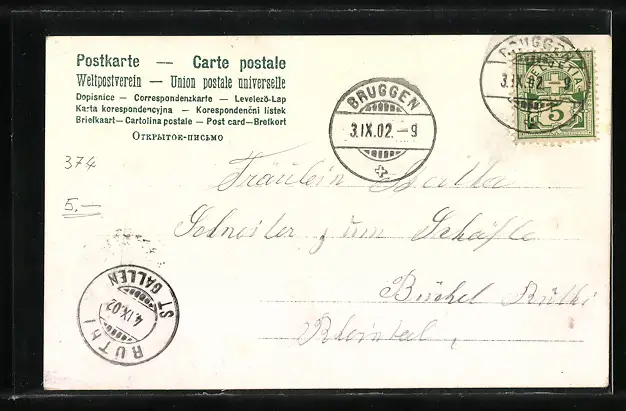 Postkarte — Carte postale
Weltpostverein — Union postale universelle
Dopisnice — Correspondenzkarte — Levelező-Lap
Karta korespondencyjna — Korespondenční lístek
Briefkaart — Cartolina postale — Post card — Brefkort
Открытое письмо
BRUGGEN
3.IX.02.–9
BRUGGEN
3.IX.02.–9
HELVETIA
5
374
5.—
Fräulein
Schneider zum Schäfle
Büchel Rüthi
Rheintal,
RUTHI
4.IX.02
ST GALLEN